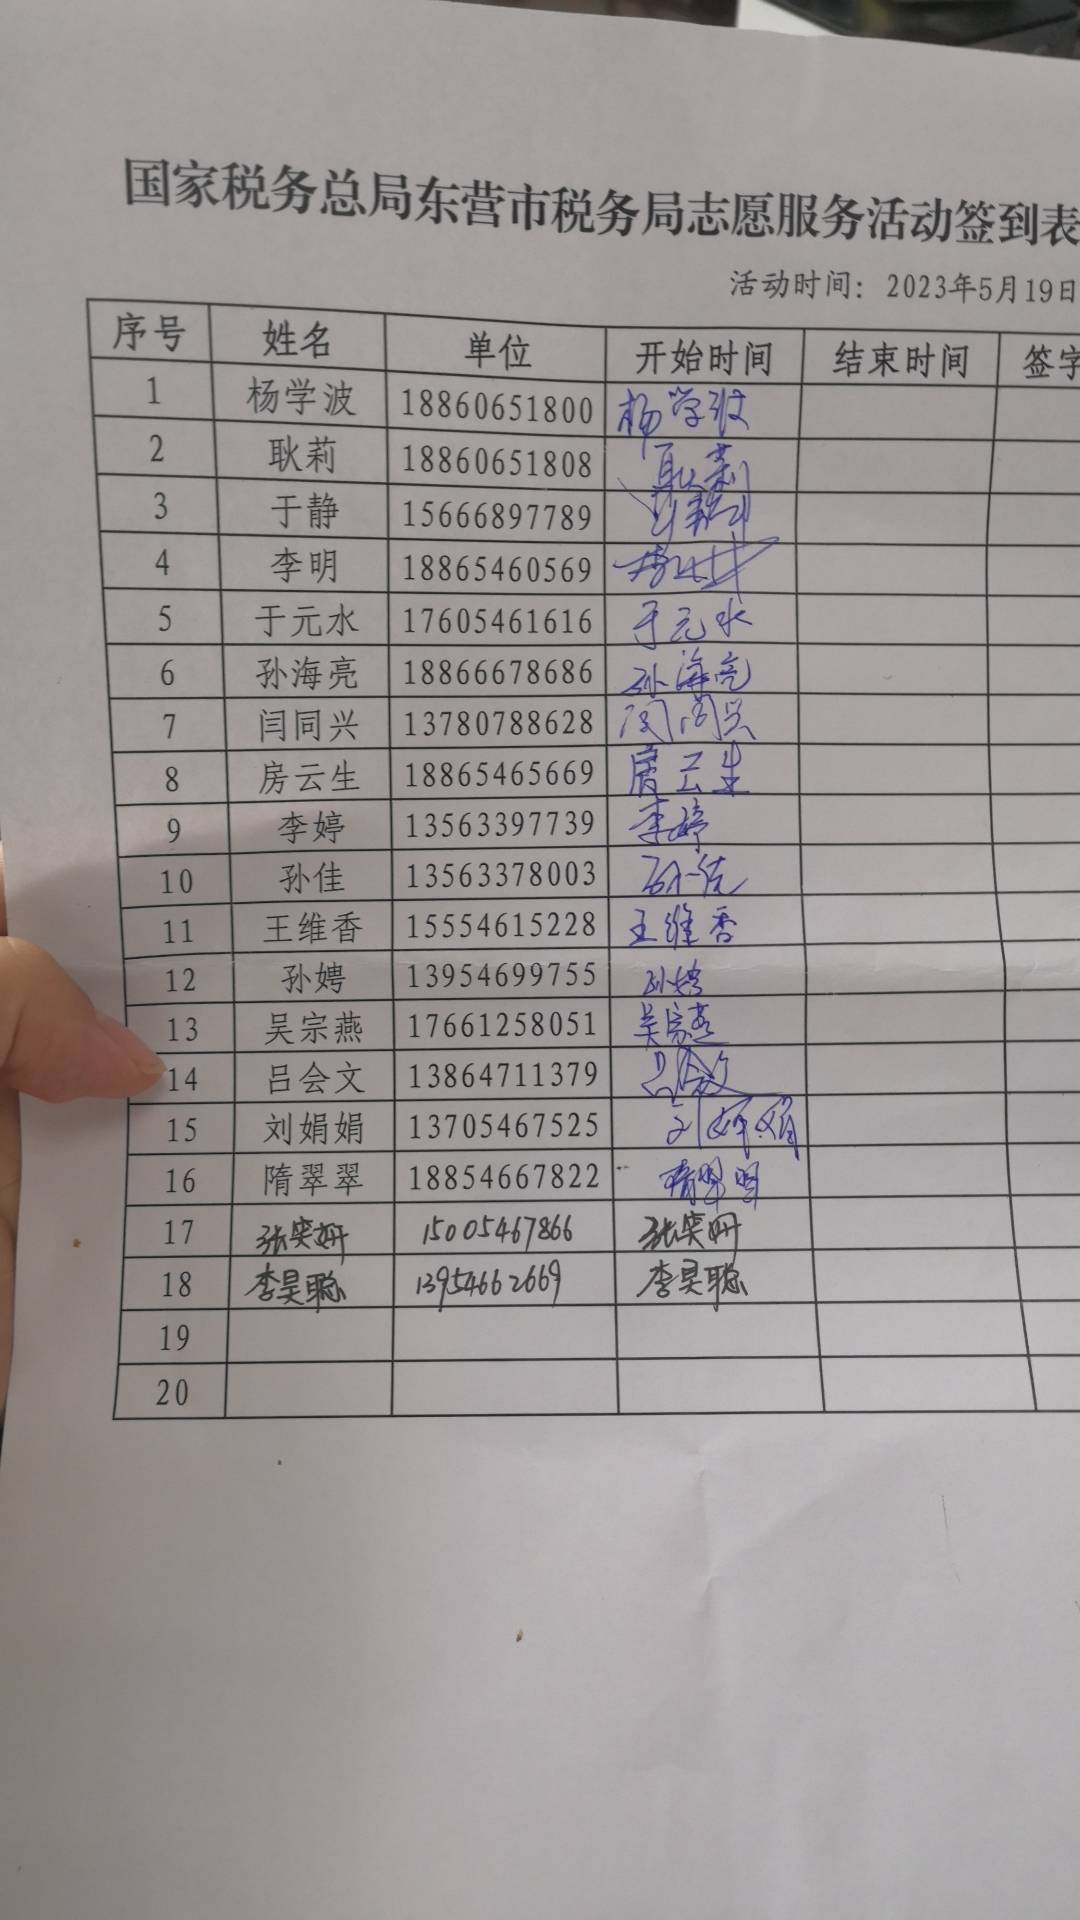 国家税务总局东营市税务局志愿服务活动签到表
活动时间：2023年5月19日
序号 姓名 单位 开始时间 结束时间 签字
1 杨学波 18860651800 杨学波
2 耿莉 18860651808 耿莉
3 于静 15666897789 于静
4 李明 18865460569
5 于元水 17605461616 于元水
6 孙海亮 18866678686 孙海亮
7 闫同兴 13780788628 闫同兴
8 房云生 18865465669 房云生
9 李婷 13563397739 李婷
10 孙佳 13563378003 孙佳
11 王维香 15554615228 王维香
12 孙娉 13954699755 孙娉
13 吴宗燕 17661258051 吴宗燕
14 吕会文 13864711379 吕会文
15 刘娟娟 13705467525 刘娟娟
16 隋翠翠 18854667822 隋翠翠
17 张奕妍 15005467866 张奕妍
18 李昊聪 13954662669 李昊聪
19
20